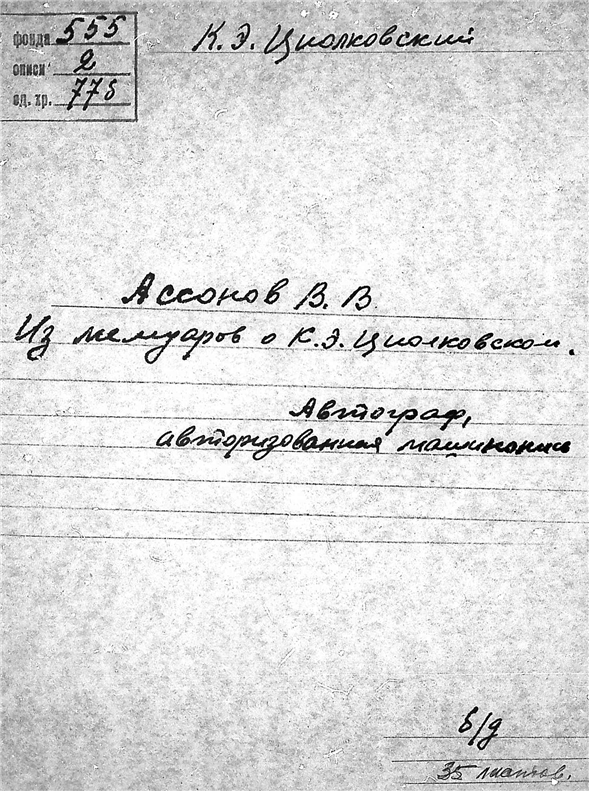 фонда 555
К. Э. Циолковский
описи 2
ед. хр. 775
Ассонов В. В.
Из мемуаров о К.Э. Циолковском.
Автограф,
авторизованная машинопись
б/д
35 листов.